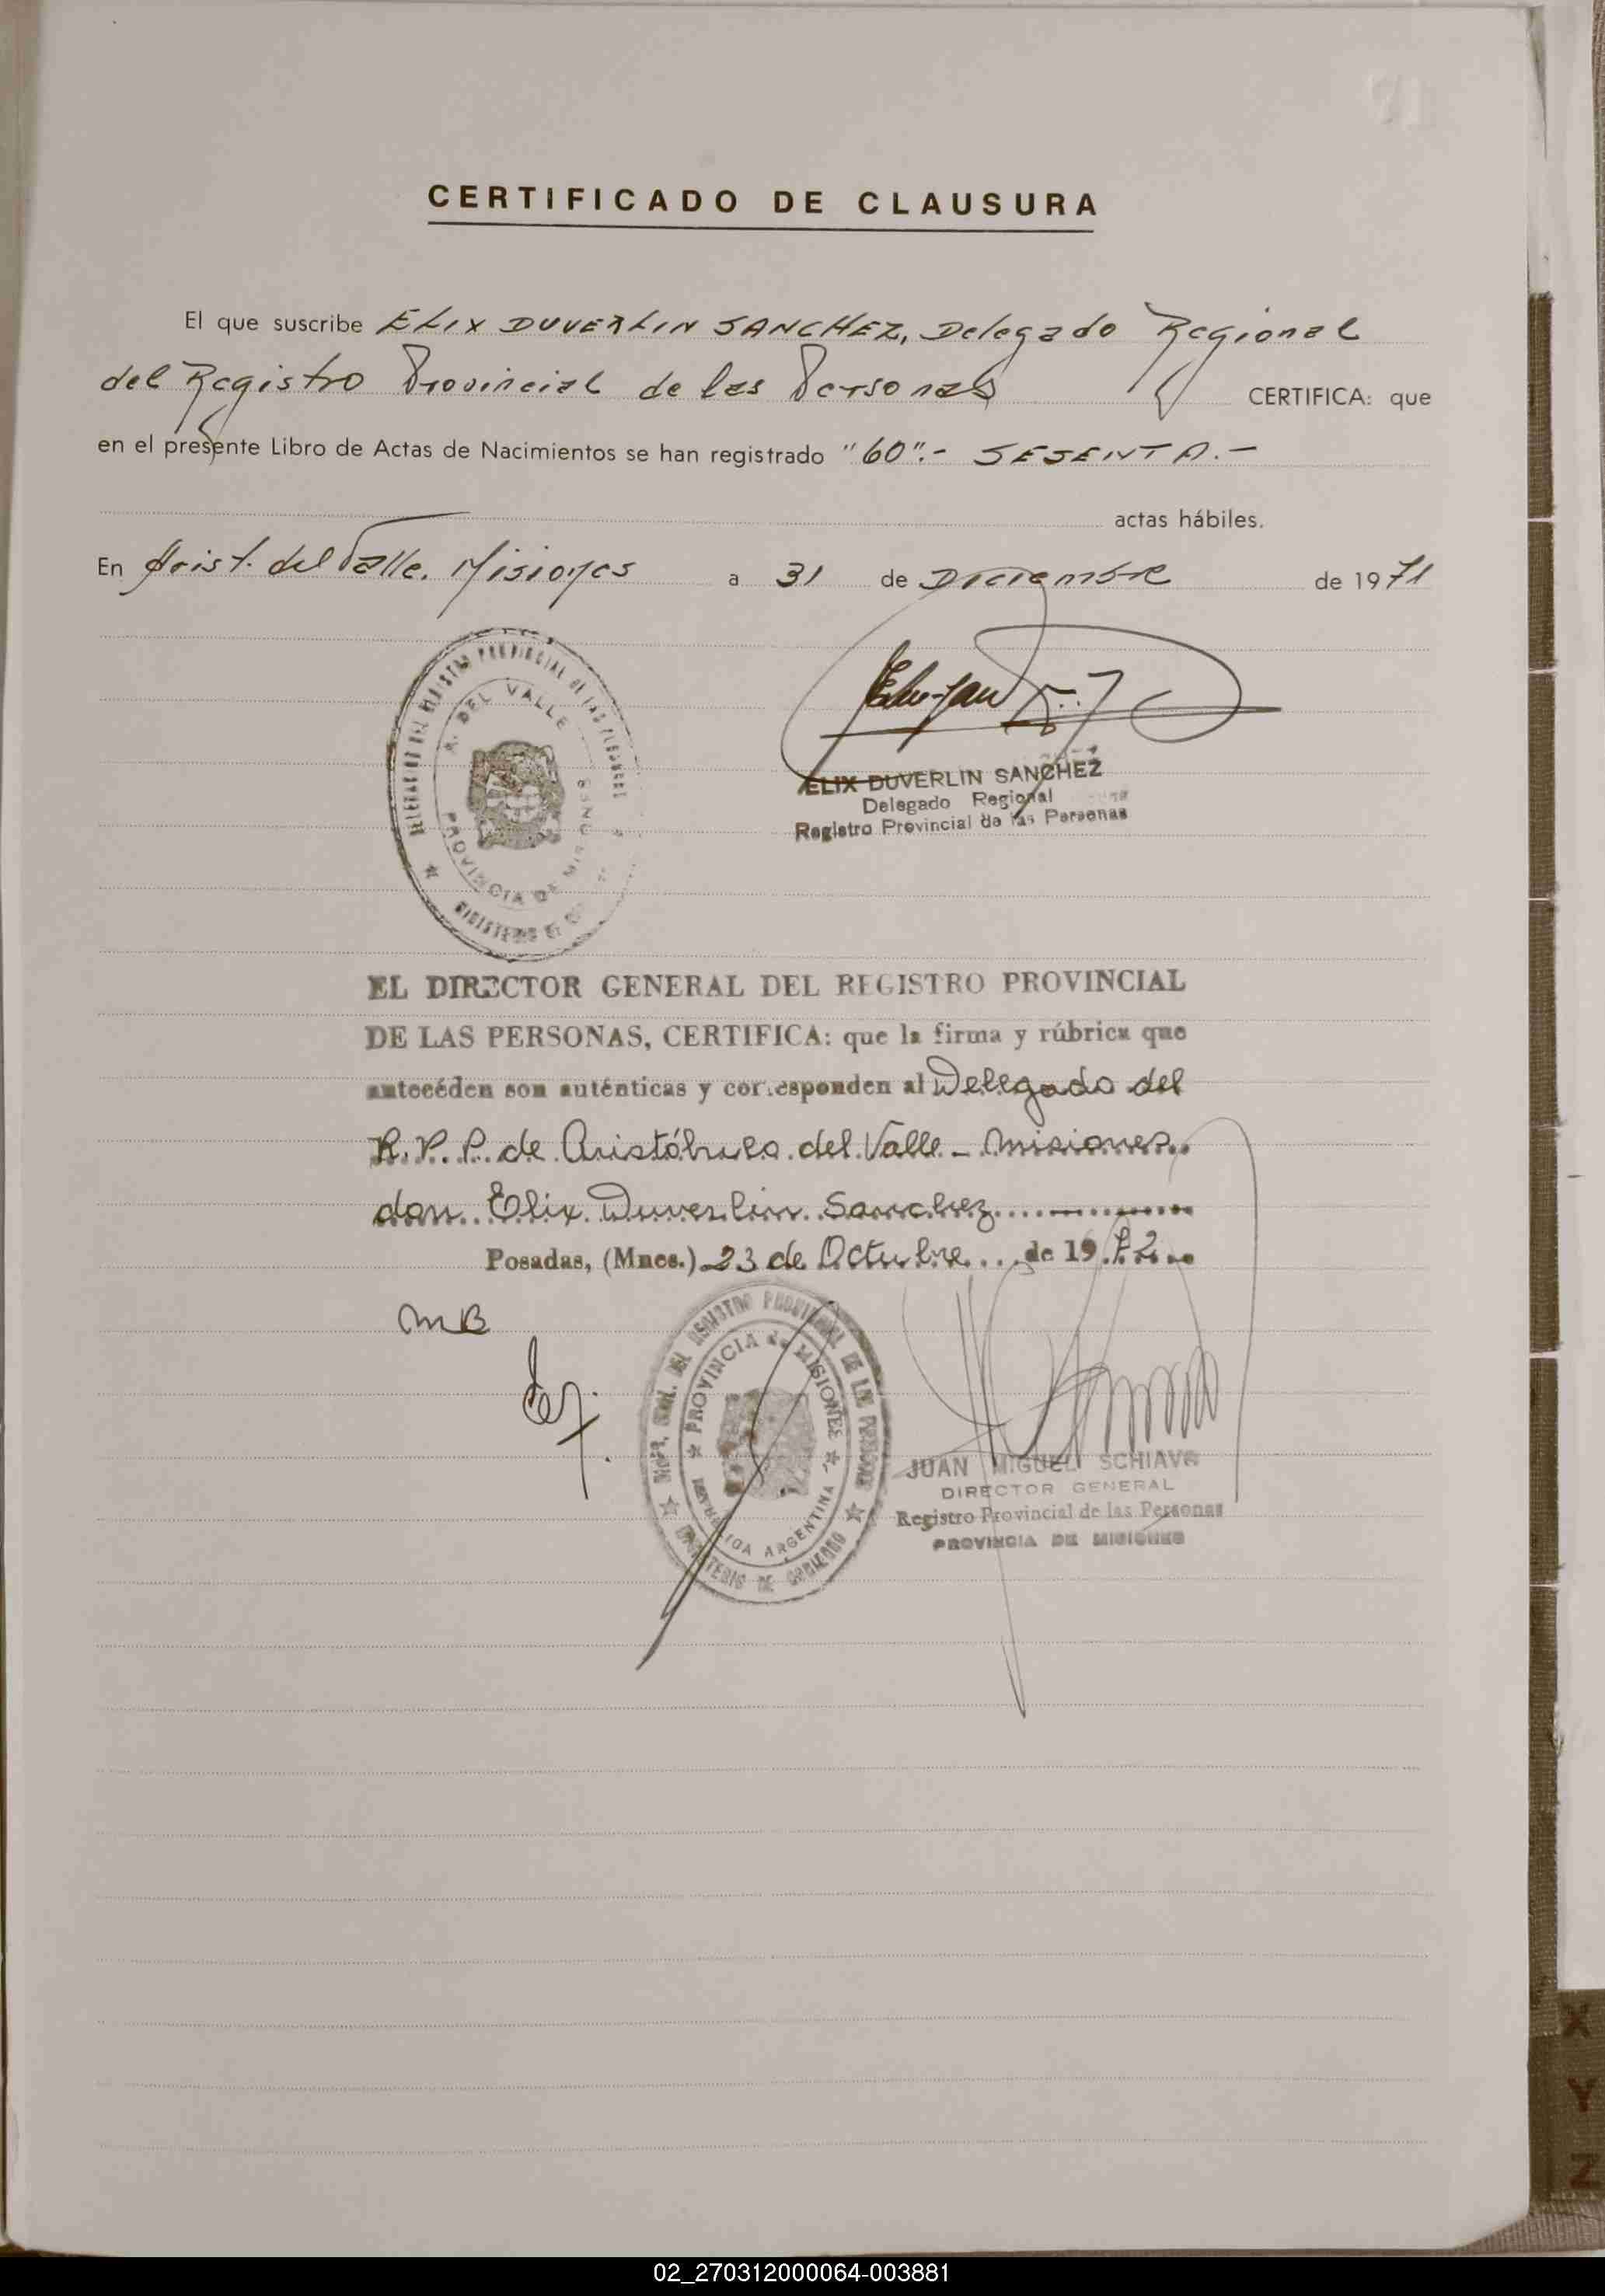 CERTIFICADO DE CLAUSURA
El que suscribe ELIX DUVERLIN SANCHEZ, Delegado Regional
del Registro Provincial de las Personas CERTIFICA: que
en el presente Libro de Actas de Nacimientos se han registrado "60".- SESENTA.-
actas hábiles.
En Arist. del Valle. Misiones a 31 de Diciembre de 1971
DELEGACION DEL REGISTRO PROVINCIAL DE LAS PERSONAS
A. DEL VALLE
PROVINCIA DE MISIONES
MINISTERIO DE
ELIX DUVERLIN SANCHEZ
Delegado Regional
Registro Provincial de las Personas
EL DIRECTOR GENERAL DEL REGISTRO PROVINCIAL
DE LAS PERSONAS, CERTIFICA: que la firma y rúbrica que
antecéden son auténticas y corresponden al Delegado del
R. P. P. de Aristóbulo del Valle - Misiones.
don Elix Duverlin Sanchez
Posadas, (Mnes.) 23 de Octubre de 19 72
MB
GRAL. DEL REGISTRO PROVINCIAL DE LAS PERSONAS
PROVINCIA de MISIONES
REPUBLICA ARGENTINA
MINISTERIO DE GOBIERNO
JUAN MIGUEL SCHIAVO
DIRECTOR GENERAL
Registro Provincial de las Personas
PROVINCIA DE MISIONES
X
Y
Z
02_270312000064-003881